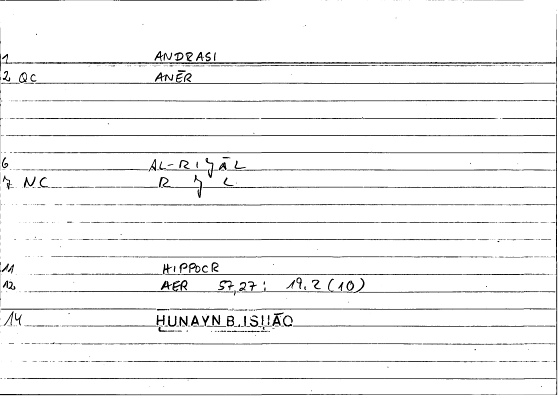 1 ANDRASI
2 QC ANĒR
6 AL-RIJĀL
7 NC R J L
11 HIPPOCR
12 AER 57,27: 19.2 (10)
14 HUNAYN B. ISḤĀQ